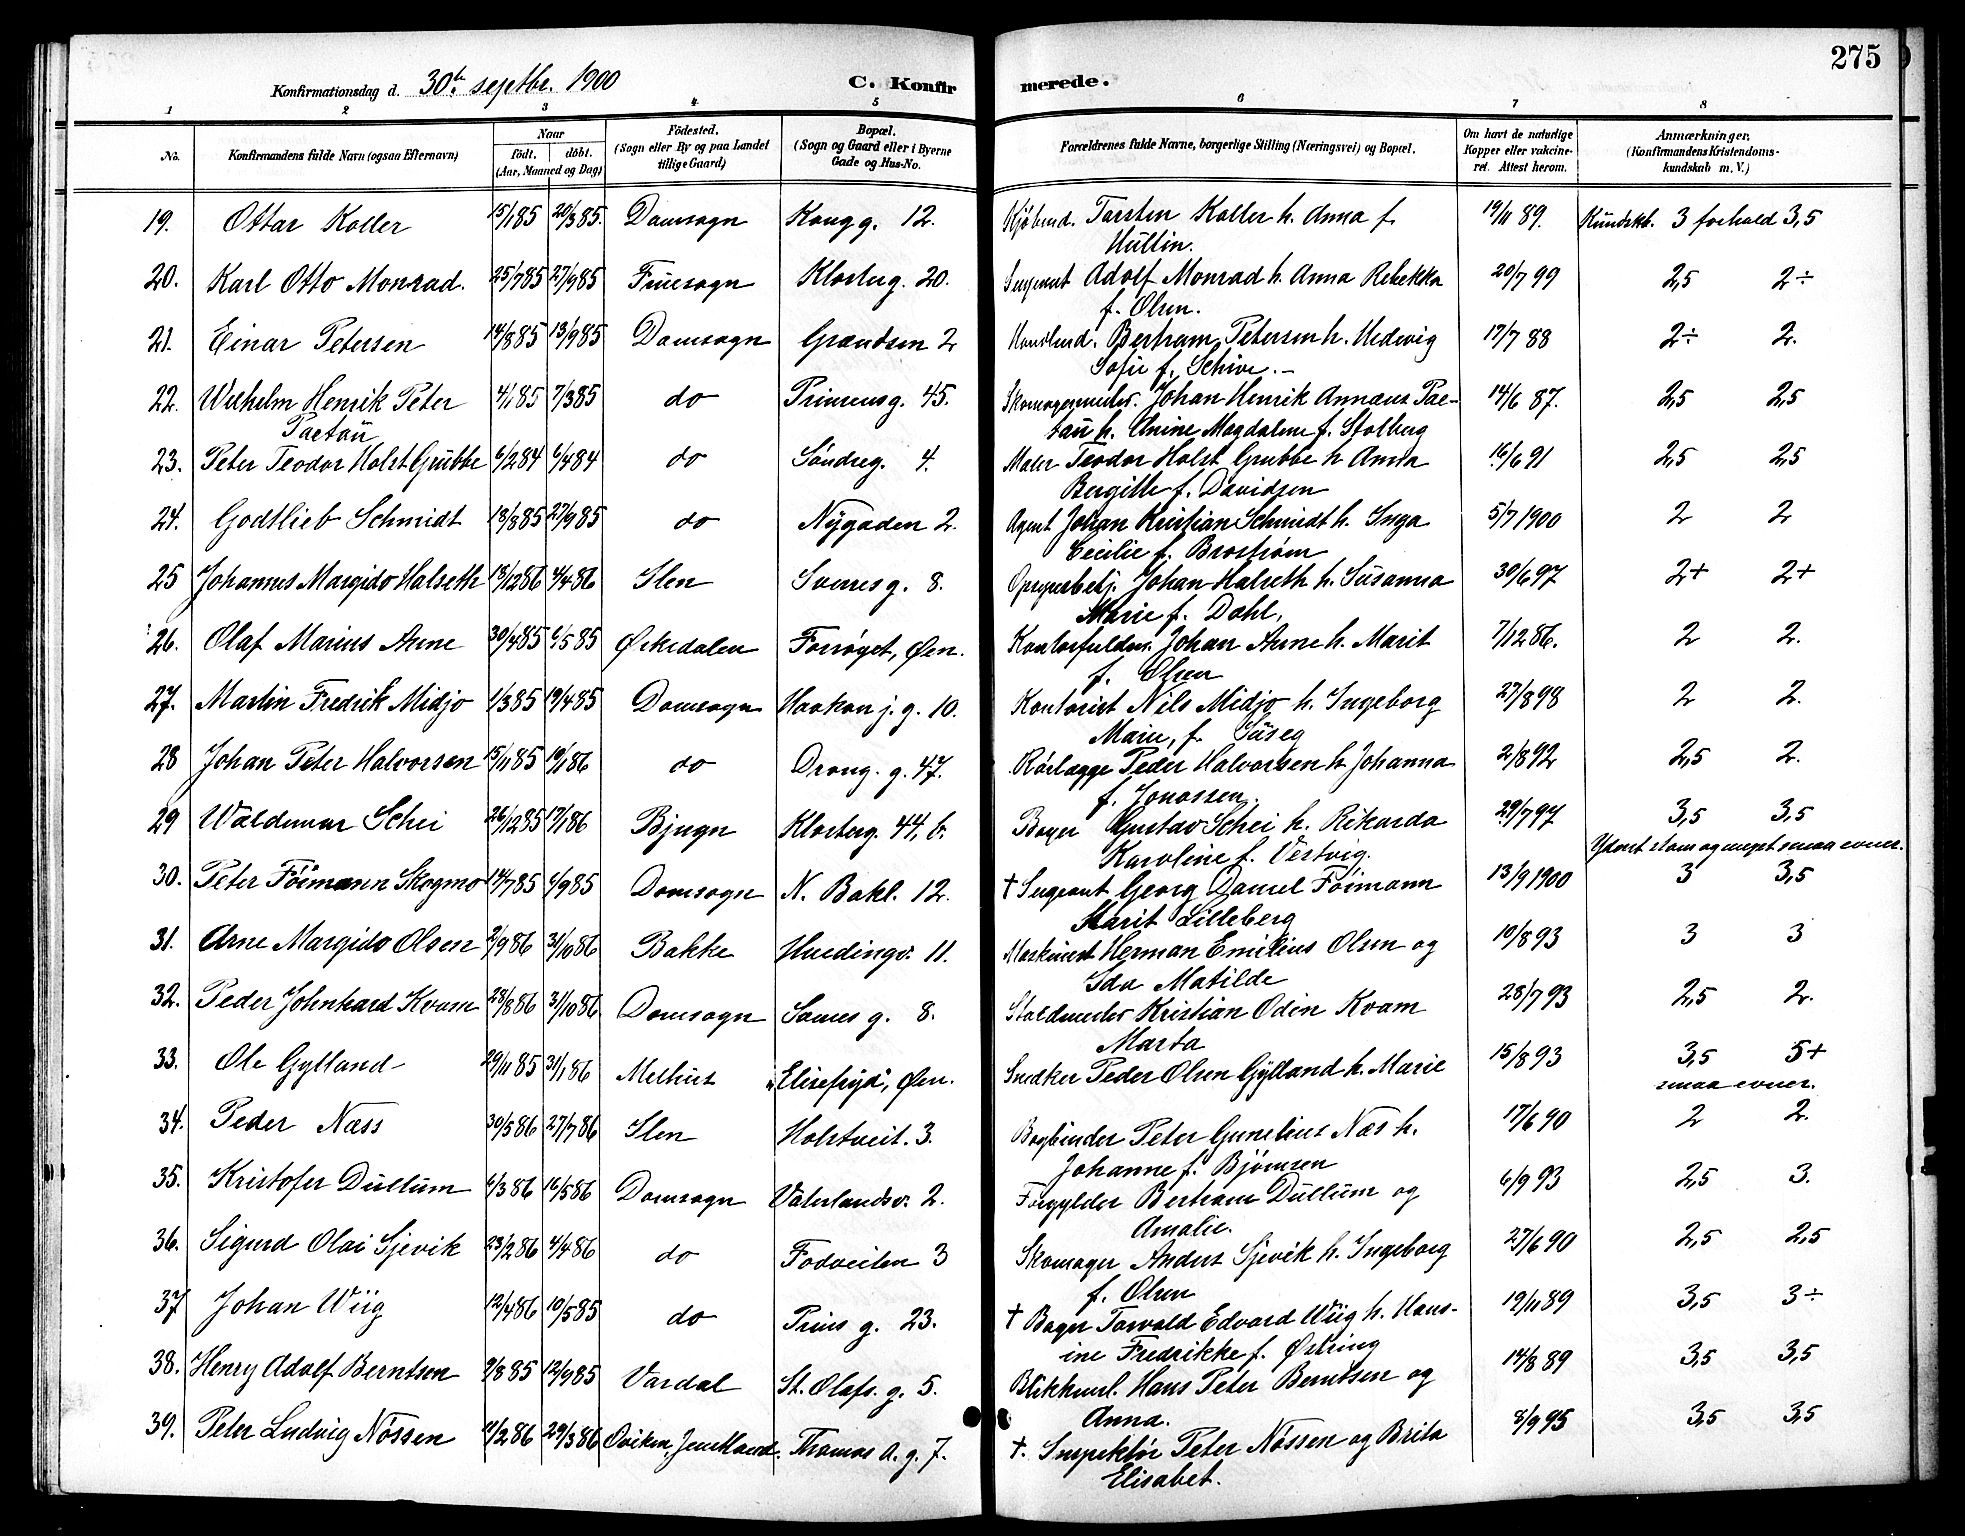 275
Konfirmationsdag d. 30te septbr. 1900 C. Konfirmerede.
1 2 3 4 5 6 7 8
No. Konfirmandens fulde Navn (ogsaa Efternavn) Naar födt. döbt. (Aar, Maaned og Dag) Födested. (Sogn eller By og paa Landet tillige Gaard) Bopæl. (Sogn og Gaard eller i Byerne Gade og Hus-No. Forældrenes fulde Navne, borgerlige Stilling (Næringsvei) og Bopæl. Om havt de naturlige Kopper eller vakcineret. Attest herom. Anmærkninger. (Konfirmandens Kristendomskundskab m. V.)
19. Ottar Koller 15/1 85 20/3 85. Domsogn Kongg. 12. Kjøbmd. Torsten Koller h. Anna f. 19/11 89. Kundskb. 3 forhold 3,5
Hullin.
20. Karl Otto Monrad. 25/7 85 27/9 85 Fruesogn Klosterg. 20. Sergeant Adolf Monrad h. Anna Rebekka 20/7 99 2,5 2÷
f. Olsen.
21. Einar Petersen 14/8 85 13/9 85 Domsogn Grandsen 2 Handlmd. Bertram Petersen h. Hedevig 17/7 88 2÷ 2.
Sofie f. Schive. –
22. Wilhelm Henrik Peter 4/1 85 7/3 85 do Prinsensg. 45. Skomagermester. Johan Henrik Annæus Pae- 14/6 87. 2,5 2,5
Paetau tau h. Anine Magdalene f. Stolberg
23. Peter Teodor Holst Grubbe 6/2 84 6/4 84 do Søndreg. 4. Maler Teodor Holst Grubbe h Anna 16/6 91 2,5 2,5
Bergitte f. Davidsen
24. Godtlieb Schmidt 13/8 85 27/9 85 do Nygaden 2. Agent Johan Kristian Schmidt h. Inga 5/7 1900 2 2
Cecilie f. Brostrøm
25 Johannes Margido Halseth 13/12 86 4/4 86 Ilen Sverresg. 8. Johan Halseth h. Susanna 30/6 97 2+ 2+
Marie f. Dahl,
26. Olaf Marius Aune 30/4 85 6/5 85 Ørkedalen Forsøget, Øen. Johan Aune h. Marit 7/12 86. 2 2.
f. Olsen
27. Martin Fredrik Midjo 1/3 85 19/4 85 Domsogn Haakon j. g. 10. Kontorist Nils Midjo h. Ingeborg 27/8 98 2 2.
Marie, f.
28 Johan Peter Halvorsen 15/11 85 19/1 86 do Drong. g. 47. Rørlægge Peder Halvorsen h Johanna 2/8 92 2,5 2.
f. Jonassen.
29 Waldemar Schei 26/12 85 17/1 86 Bjugn Klosterg. 44, b. Bager Gustav Schei h. Rikarda 29/7 97 3,5 3,5
Karoline f. Vestvig. Yderst stam og meget smaa evner.
30. Peter Föimann Skogmo 14/7 85 6/9 85 Domsogn N. Bakl. 12. † Sergeant Georg Daniel Föimann 13/9 1900 3 3,5
Marit Lilleberg
31. Arne Margido Olsen 2/9 86 31/10 86 Bakke Huedingsv. 11. Maskinist Herman Emilius Olsen og 10/8 93 3 3
Ida Matilde
32. Peder Johnhard Kvam 28/8 86 31/10 86 Domsogn g. 8. Staldmester Kristian Odin Kvam 28/7 93 2,5 2.
Marta
33. Ole Gylland 29/11 85 31/1 86 Melhus „Elisefryd“, Øen. Snedker Peder Olsen Gylland h. Marie 15/8 93 3,5 5+
smaa evner.
34. Peder Næss 30/5 86 27/7 86 Ilen Holstveit. 3. Bogbinder Peter Gunelius Næs h. 17/6 90 2 2.
Johanne f. Bjørnsen
35. Kristofer Dullum 6/3 86 16/5 86 Domsogn Vaterlandsv. 2. Forgylder Bertram Dullum og 6/9 93 2,5 3.
Amalie.
36. Sigurd Olai Sjevik 23/2 86 4/4 86 do Fodveiten 3 Skomager Anders Sjevik h. Ingeborg 27/6 90 2,5 2,5
f. Olsen
37 Johan Wiig 12/4 86 10/5 85 do Prins g. 23. † Bager Torvald Edvard Wiig h. Hans- 19/11 89 3,5 3÷
ine Fredrikke f. Østring
38. Henry Adolf Berntsen 9/8 85 12/9 85 Vardal St. Olafs. g. 5. Blikkensl. Hans Peter Berntsen og 14/8 89 3,5 3,5
Anna.
39. Peter Ludvig Nössen 11/2 86 29/3 86 Oviken, Jemtland. Thomas A. g. 7. †. Inspektör Peter Nössen og Brita 8/9 95 3,5 3,5
Elisabet.